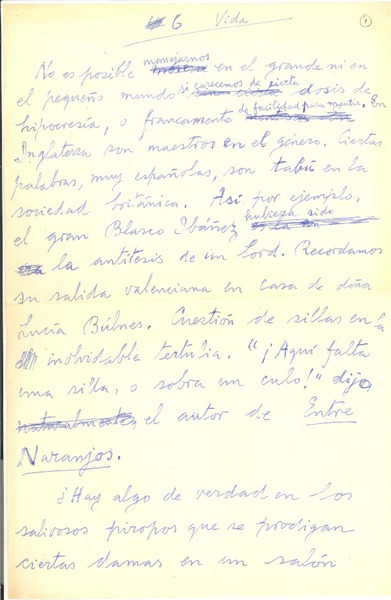 6 Vida
1
No es posible manejarnos en el grande ni en
el pequeño mundo si carecemos de cierta dosis de
hipocresía, o francamente de facilidad para mentir. En
Inglaterra son maestros en el género. Ciertas
palabras, muy españolas, son tabú en la
sociedad británica. Así, por ejemplo,
el gran Blasco Ibáñez hubiera sido
la antítesis de un lord. Recordamos
su salida valenciana en casa de doña
Lucía Búlnes. Cuestión de sillas en la
inolvidable tertulia. "¡Aquí falta
una silla, o sobra un culo!" dijo
el autor de Entre
Naranjos.
¿Hay algo de verdad en los
salivosos piropos que se prodigan
ciertas damas en un salón